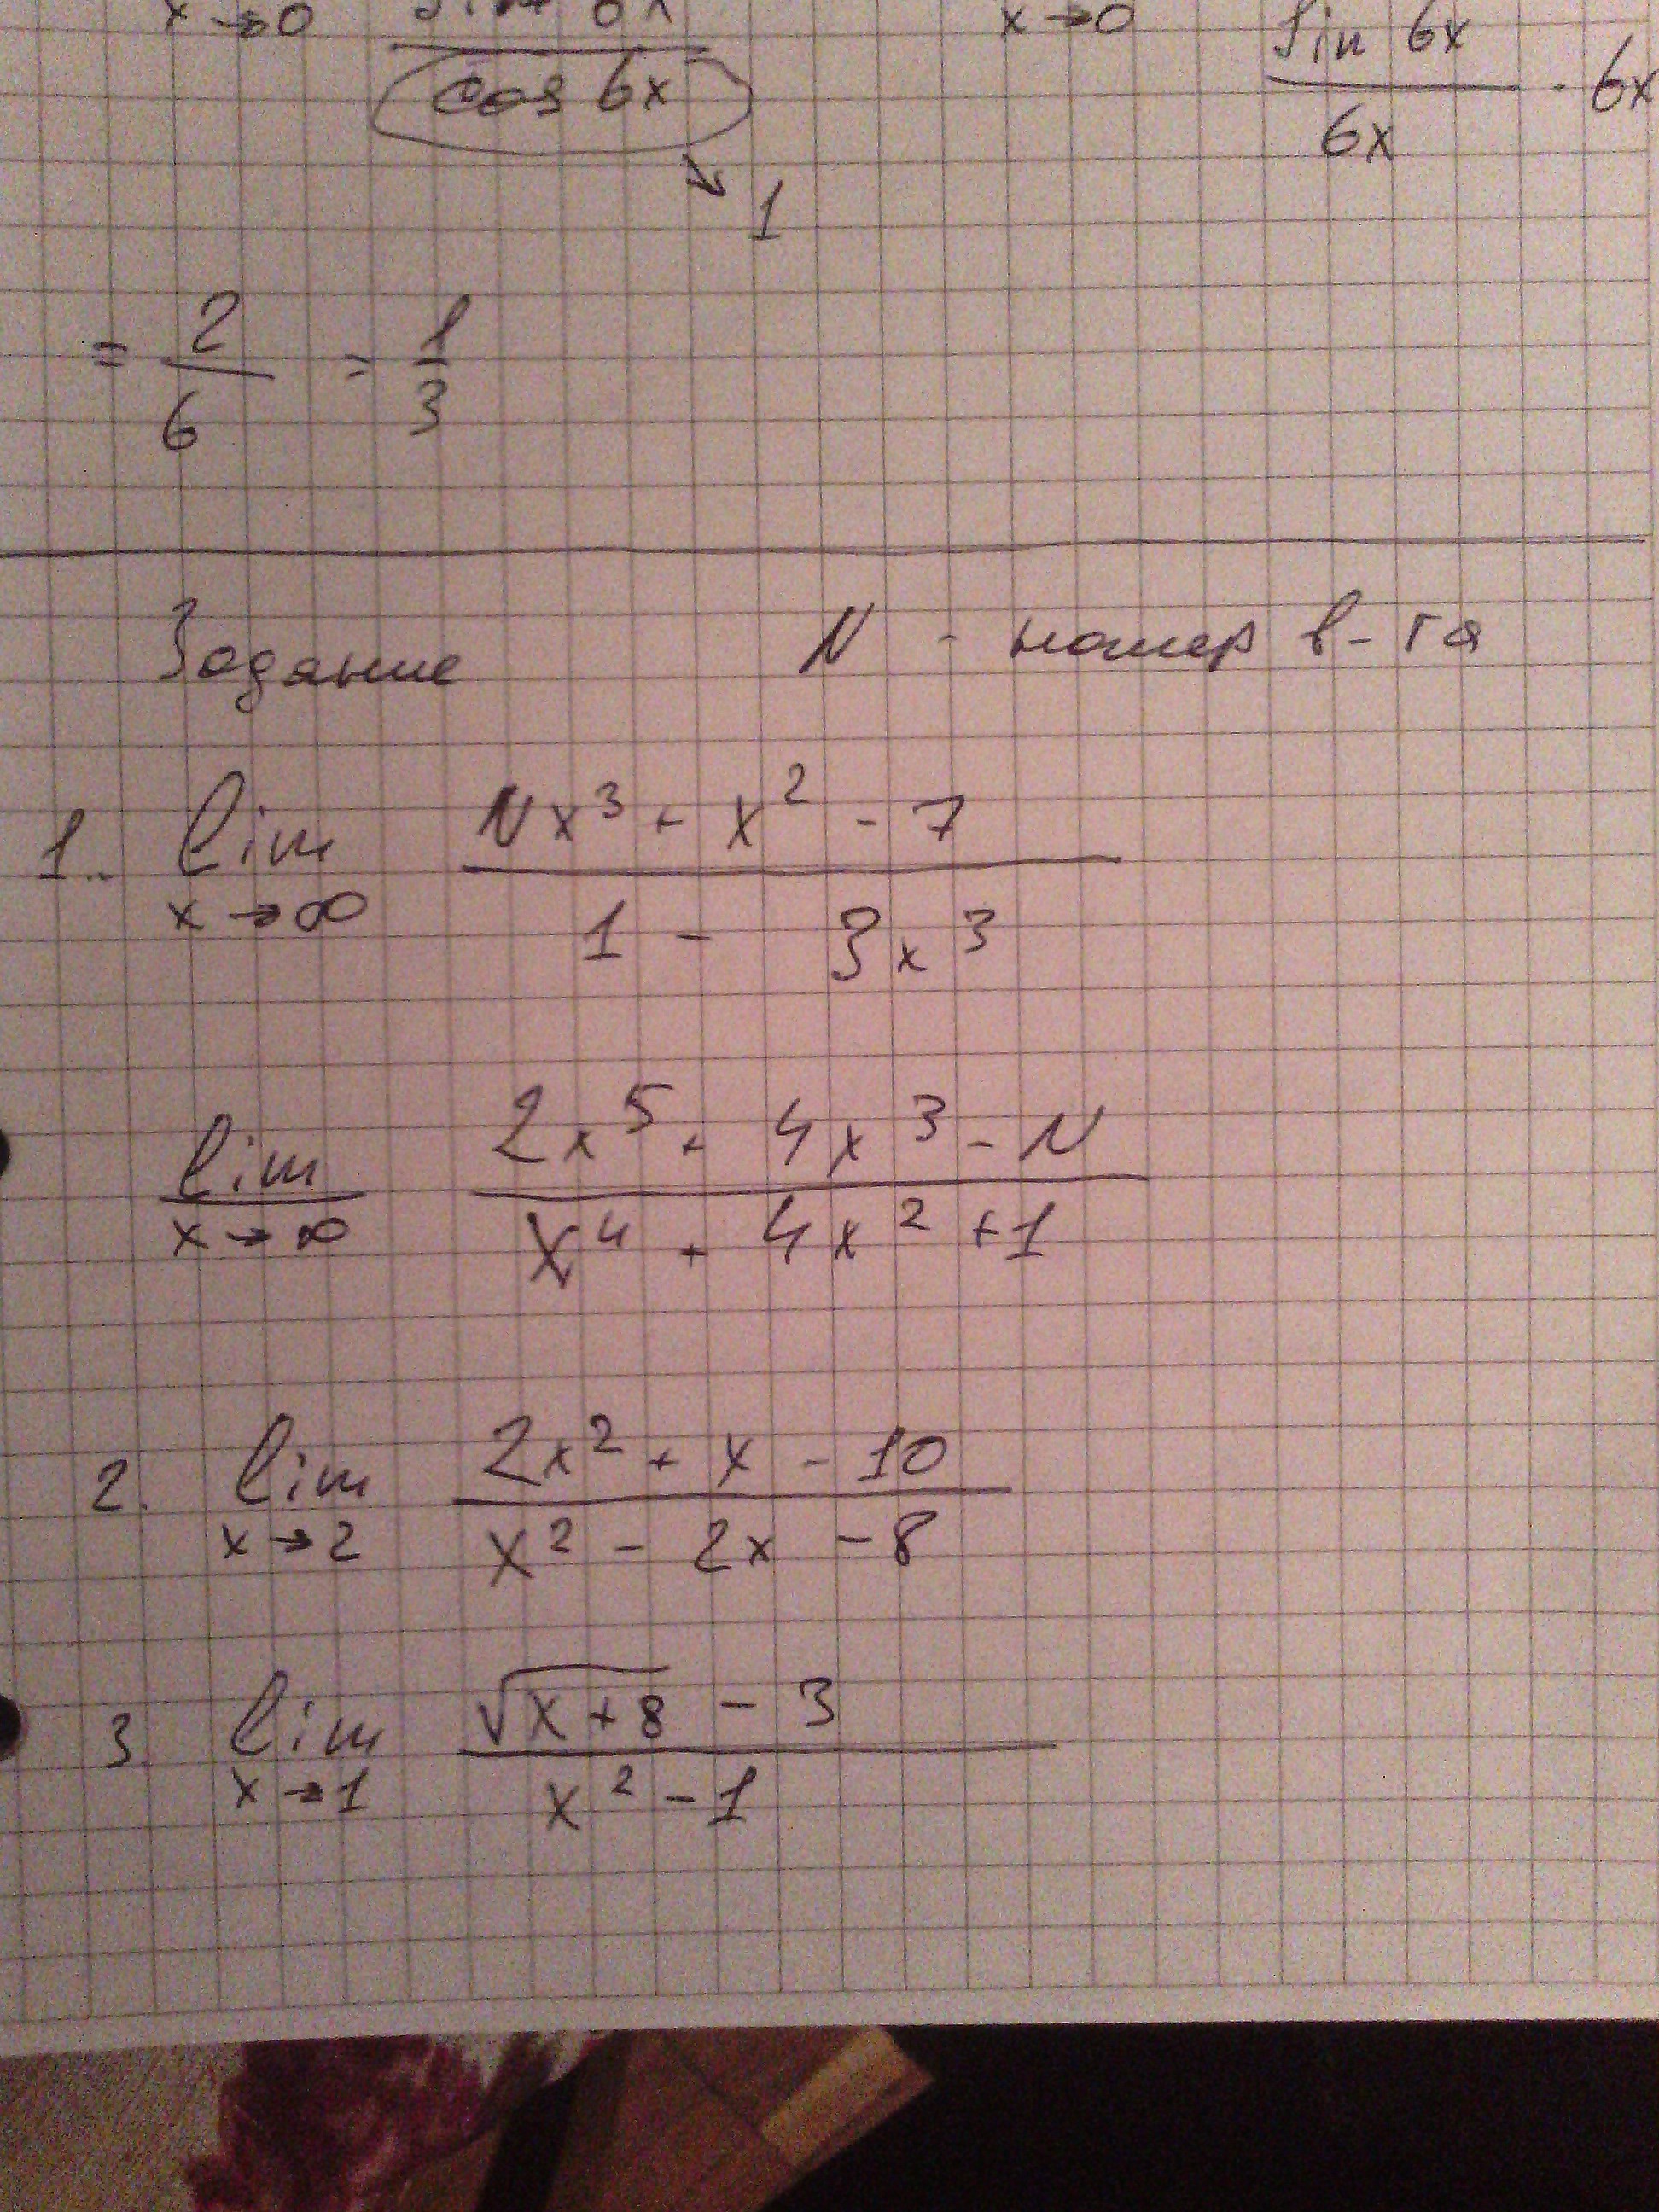 x→0 sin 6x x→0 sin 6x
cos 6x 6x · 6x
1
= 2/6 = 1/3
Задание N - номер в-та
1. lim x→∞ (Nx³ + x² - 7) / (1 - 3x³)
lim x→∞ (2x⁵ + 4x³ - N) / (x⁴ + 4x² + 1)
2. lim x→2 (2x² + x - 10) / (x² - 2x - 8)
3. lim x→1 (√(x+8) - 3) / (x² - 1)